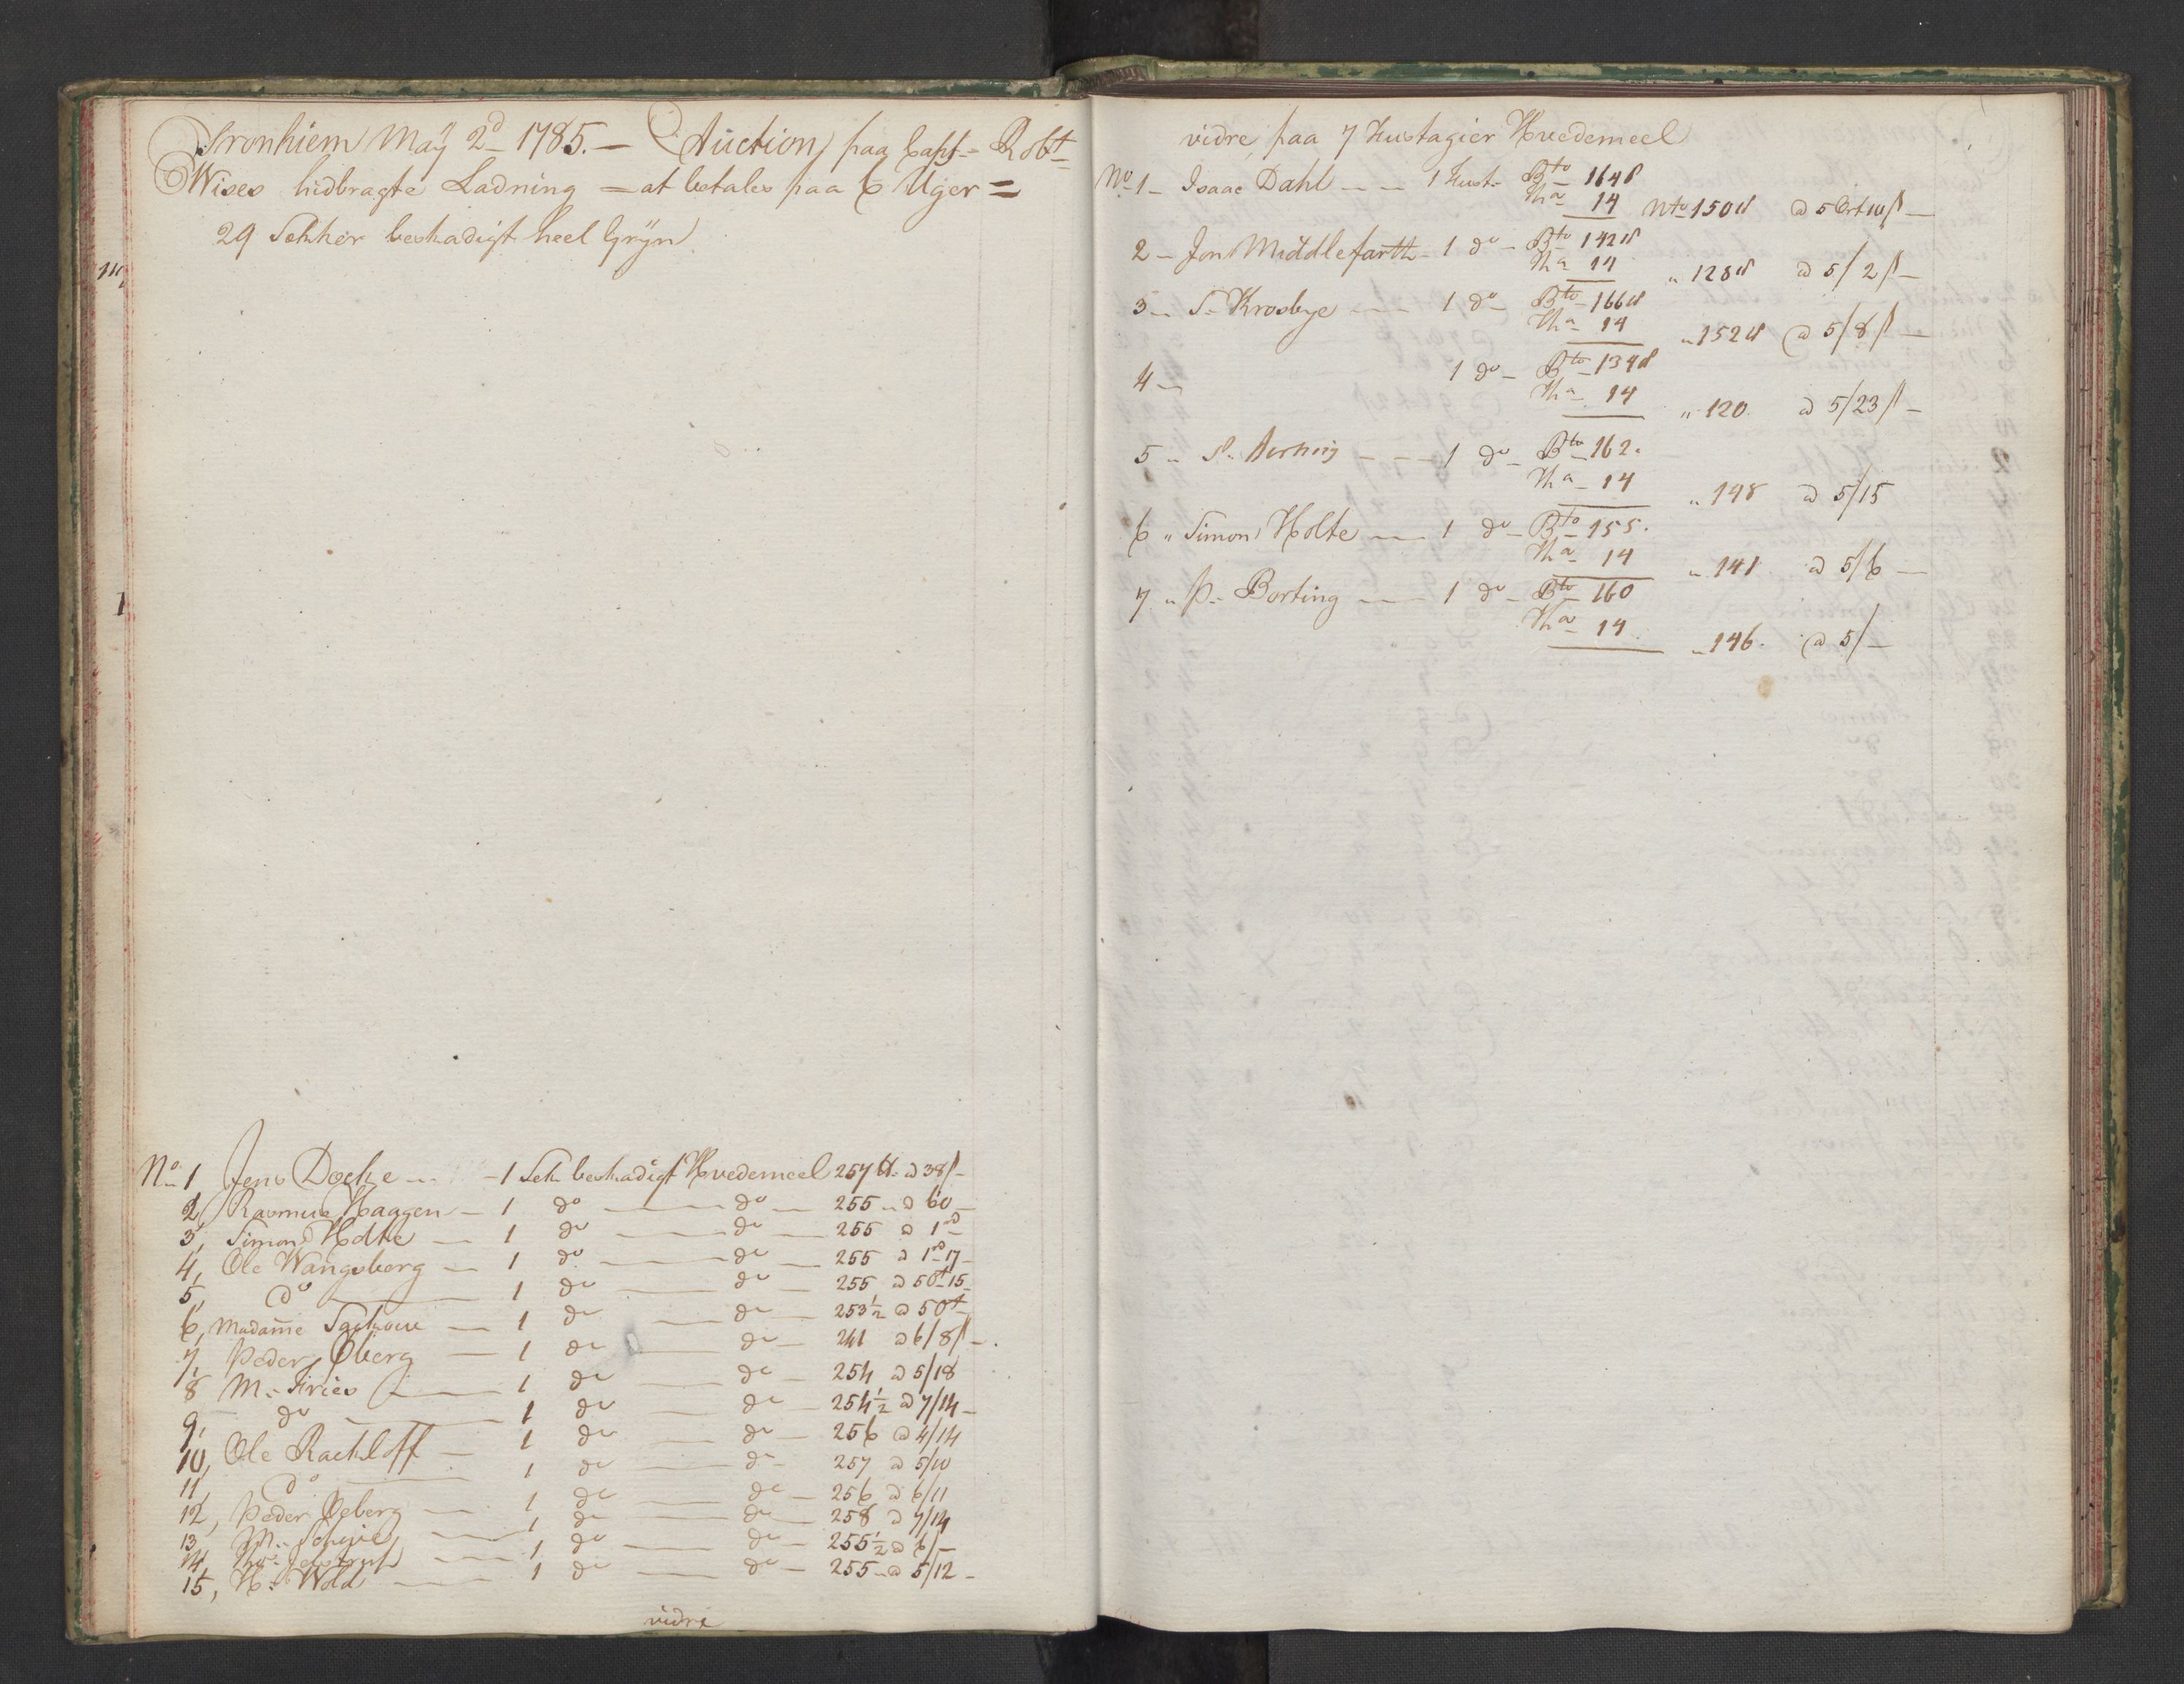 Tronhiem Maÿ 2d 1785. — Auction paa Capt= Robt=
Wises hidbragte Ladning = at betales paa 6 Uger =
29 Sekker beskadigt heel Grÿn
No 1 Jens Docke — 1 Sek beskadigt Hvedemeel 257 tt. a 38 s —
2, Rasmus Haagen — 1 do — do — 255 " a 60 —
3, Simon Holte — 1 do — do — 255 a 1 rd
4, Ole Wangsberg — 1 do — do — 255 a 1 rd 17 —
5, do — 1 do do — 255 a 5 Ort 15
6, Madame — 1 do — do — 253½ a 5 Ort
7, Peder Øberg — 1 do — do — 241 a 6/8 s —.
8 M. Fries — 1 do — do — 254 a 5/18
9, do — 1 do — do — 254½ a 7/14 —
10, Ole Rachloff — 1 do — do — 256 a 4/14
11, do — 1 do — do 257 a 5/10
12, Peder Oeberg — 1 do — do — 256 a 6/11
13 M. — 1 do — do — 258 a 7/14
14, — 1 do — do — 255½ a 6/—
15, H. Wold — 1 do — do — 255 " a 5/12 —
vidre
vidre paa 7 Fustagier Hvedemeel
No 1 — Isaac Dahl — — 1 Fust. Bto 164 tt
Tha 14 Nto 150 tt a 5 Ort 10 s —
2 — Jon Middlefarth — 1 do — Bto 142 tt
Tha 14 " 128 tt a 5/2 s —
3 — S. Krosbye — 1 do — Bto 166 tt
Tha 14 " 152 tt a 5/8 s —
4 — 1 do — Bto 134 tt
Tha 14 " 120 a 5/23 s —
5 " — — 1 do — Bto 162.
Tha 14 " 148 a 5/15
6 " Simon Holte — 1 do — Bto 155.
Tha 14 " 141 a 5/6 —
7 " P. Borting — 1 do — Bto 160
Tha 14 " 146. a 5/—